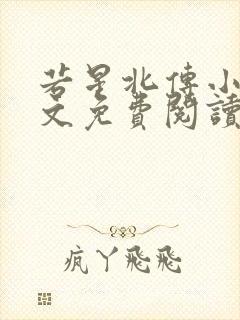 若星北傅小
文免費閱讀
疯丫飛飛